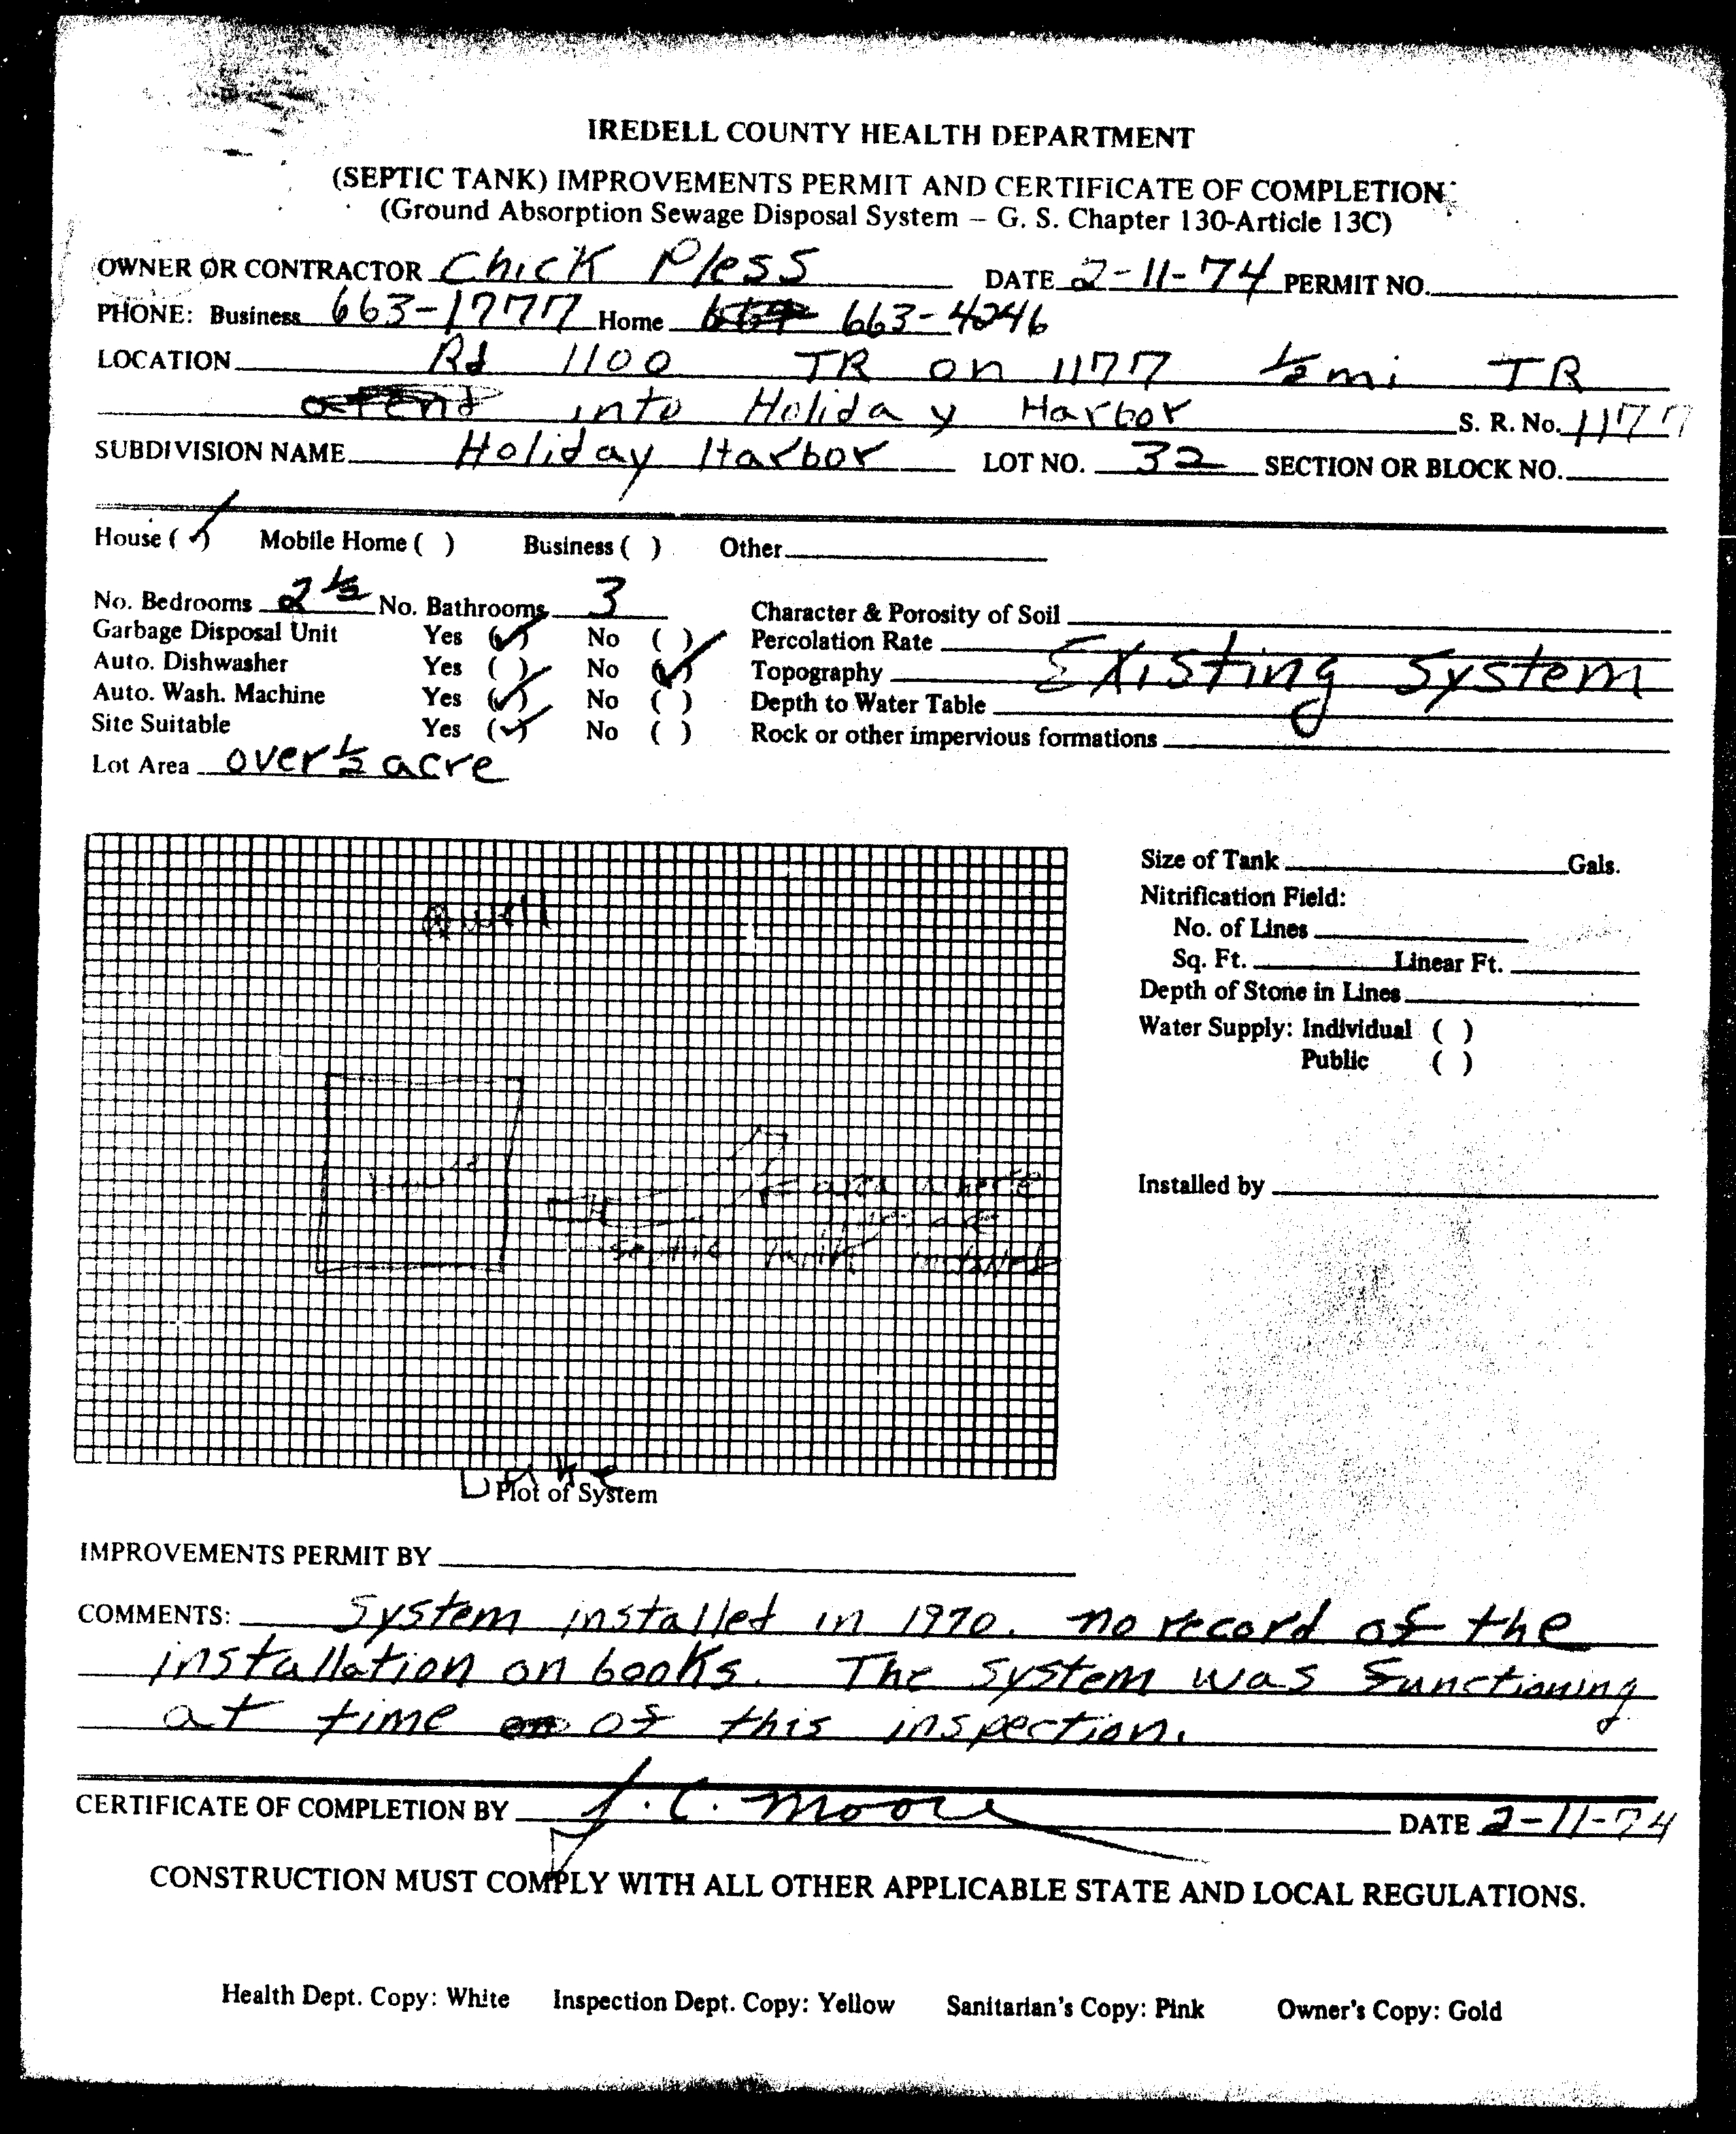 IREDELL COUNTY HEALTH DEPARTMENT
(SEPTIC TANK) IMPROVEMENTS PERMIT AND CERTIFICATE OF COMPLETION
(Ground Absorption Sewage Disposal System – G. S. Chapter 130-Article 13C)
OWNER OR CONTRACTOR Chick Pless DATE 2-11-74 PERMIT NO.
PHONE: Business 663-1777 Home 663-4246
LOCATION Rd 1100 TR on 1177 ½ mi TR
into Holiday Harbor S. R. No. 1177
SUBDIVISION NAME Holiday Harbor LOT NO. 32 SECTION OR BLOCK NO.
House (✓) Mobile Home ( ) Business ( ) Other
No. Bedrooms 2 ½ No. Bathrooms 3 Character & Porosity of Soil
Garbage Disposal Unit Yes (✓) No ( ) Percolation Rate
Auto. Dishwasher Yes ( ) No (✓) Topography Existing System
Auto. Wash. Machine Yes (✓) No ( ) Depth to Water Table
Site Suitable Yes (✓) No ( ) Rock or other impervious formations
Lot Area over ½ acre
Size of Tank Gals.
Nitrification Field:
well
No. of Lines
Sq. Ft. Linear Ft.
Depth of Stone in Lines
Water Supply: Individual ( )
Public ( )
House area where
Installed by
lines are
septic tank installed
Plot of System
IMPROVEMENTS PERMIT BY
COMMENTS: System installed in 1970. no record of the
installation on books. The system was functioning
at time of this inspection.
CERTIFICATE OF COMPLETION BY J. C. Moore DATE 2-11-74
CONSTRUCTION MUST COMPLY WITH ALL OTHER APPLICABLE STATE AND LOCAL REGULATIONS.
Health Dept. Copy: White Inspection Dept. Copy: Yellow Sanitarian's Copy: Pink Owner's Copy: Gold